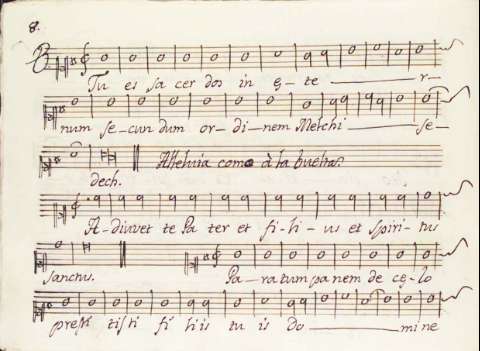 8.
Tu es sa cer dos in ę-te r-
num se-cun dum or-di-nem Melchi se-
Alleluia como à la buelta.
dech.
Adiuvet te Pa ter et fi-li-us et spiri-tus
sanctus. Pa-ratum pa nem de cę-lo
presti tisti fi liis tu is do mine